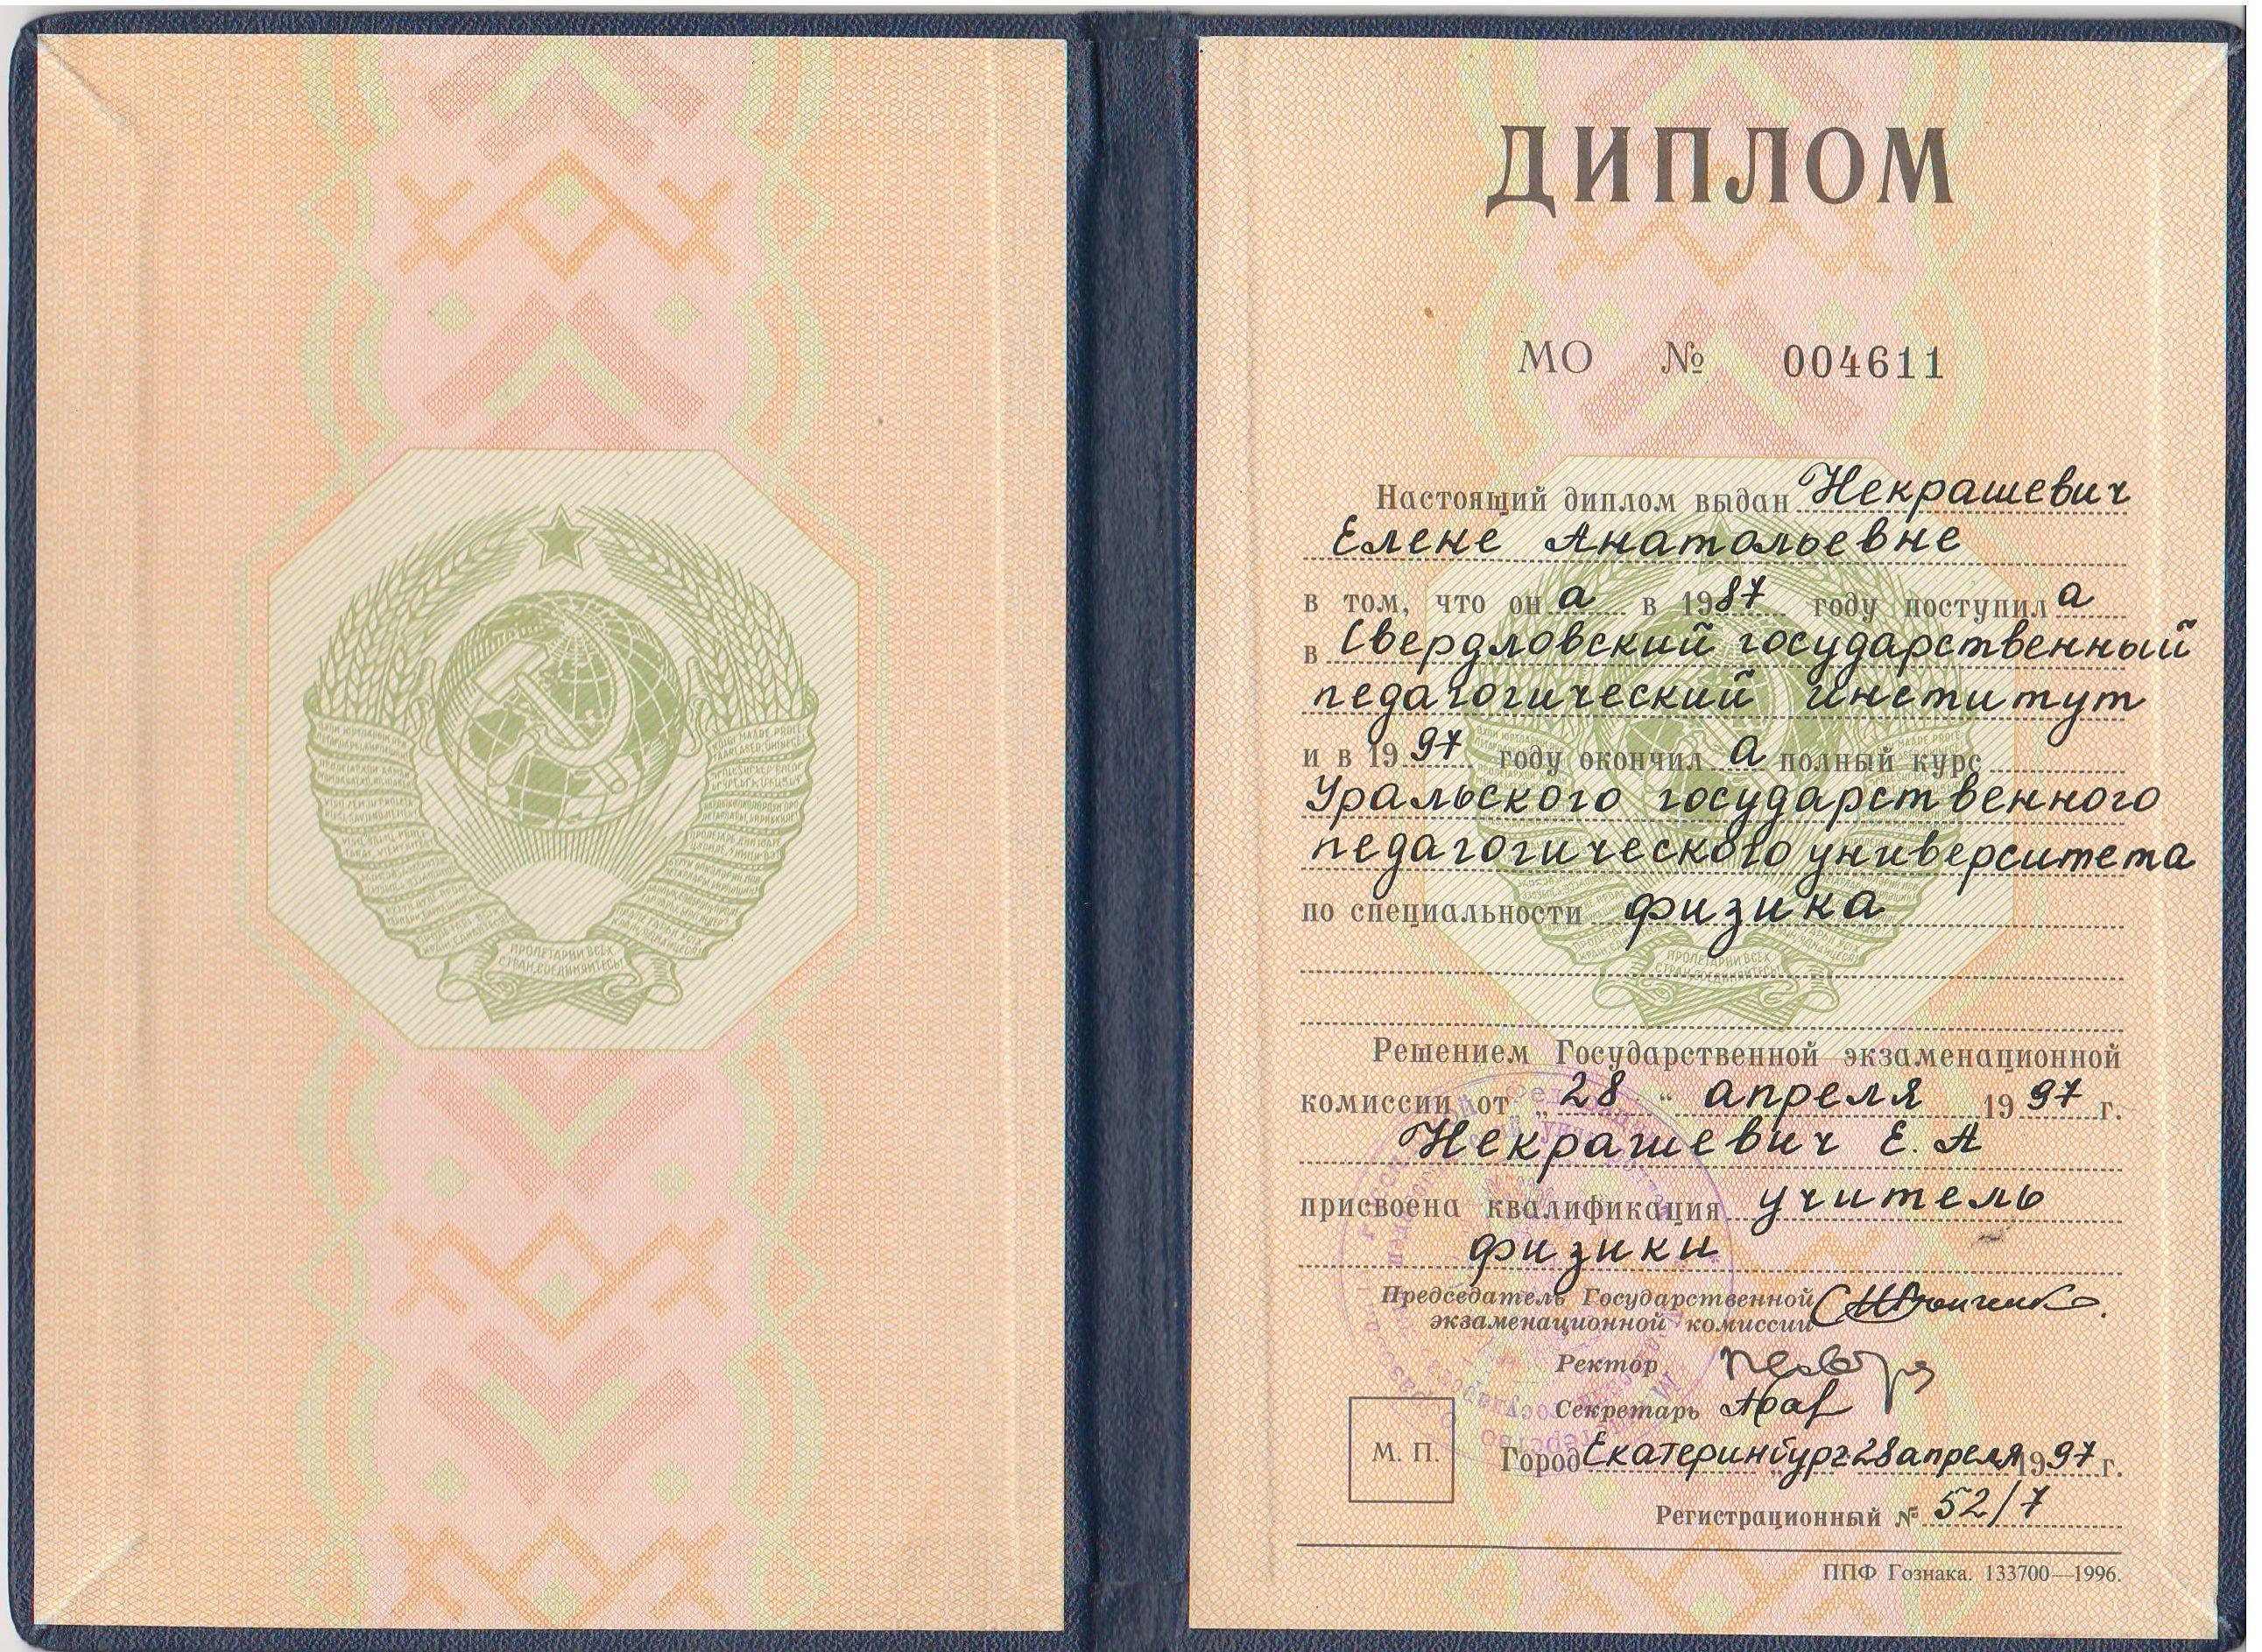 ПРОЛЕТАРИИ ВСЕХ
СТРАН, СОЕДИНЯЙТЕСЬ!
ДИПЛОМ
МО № 004611
Настоящий диплом выдан Некрашевич
Елене Анатольевне
в том, что он а в 1987 году поступил а
в Свердловский государственный
педагогический институт
и в 1997 году окончил а полный курс
Уральского государственного
педагогического университета
по специальности физика
Решением Государственной экзаменационной
комиссии от „28“ апреля 1997 г.
Некрашевич Е. А
присвоена квалификация учитель
физики
Председатель Государственной
экзаменационной комиссии
Ректор
Секретарь
М. П.
Город Екатеринбург 28 апреля 1997 г.
Регистрационный № 52/7
ППФ Гознака. 133700—1996.